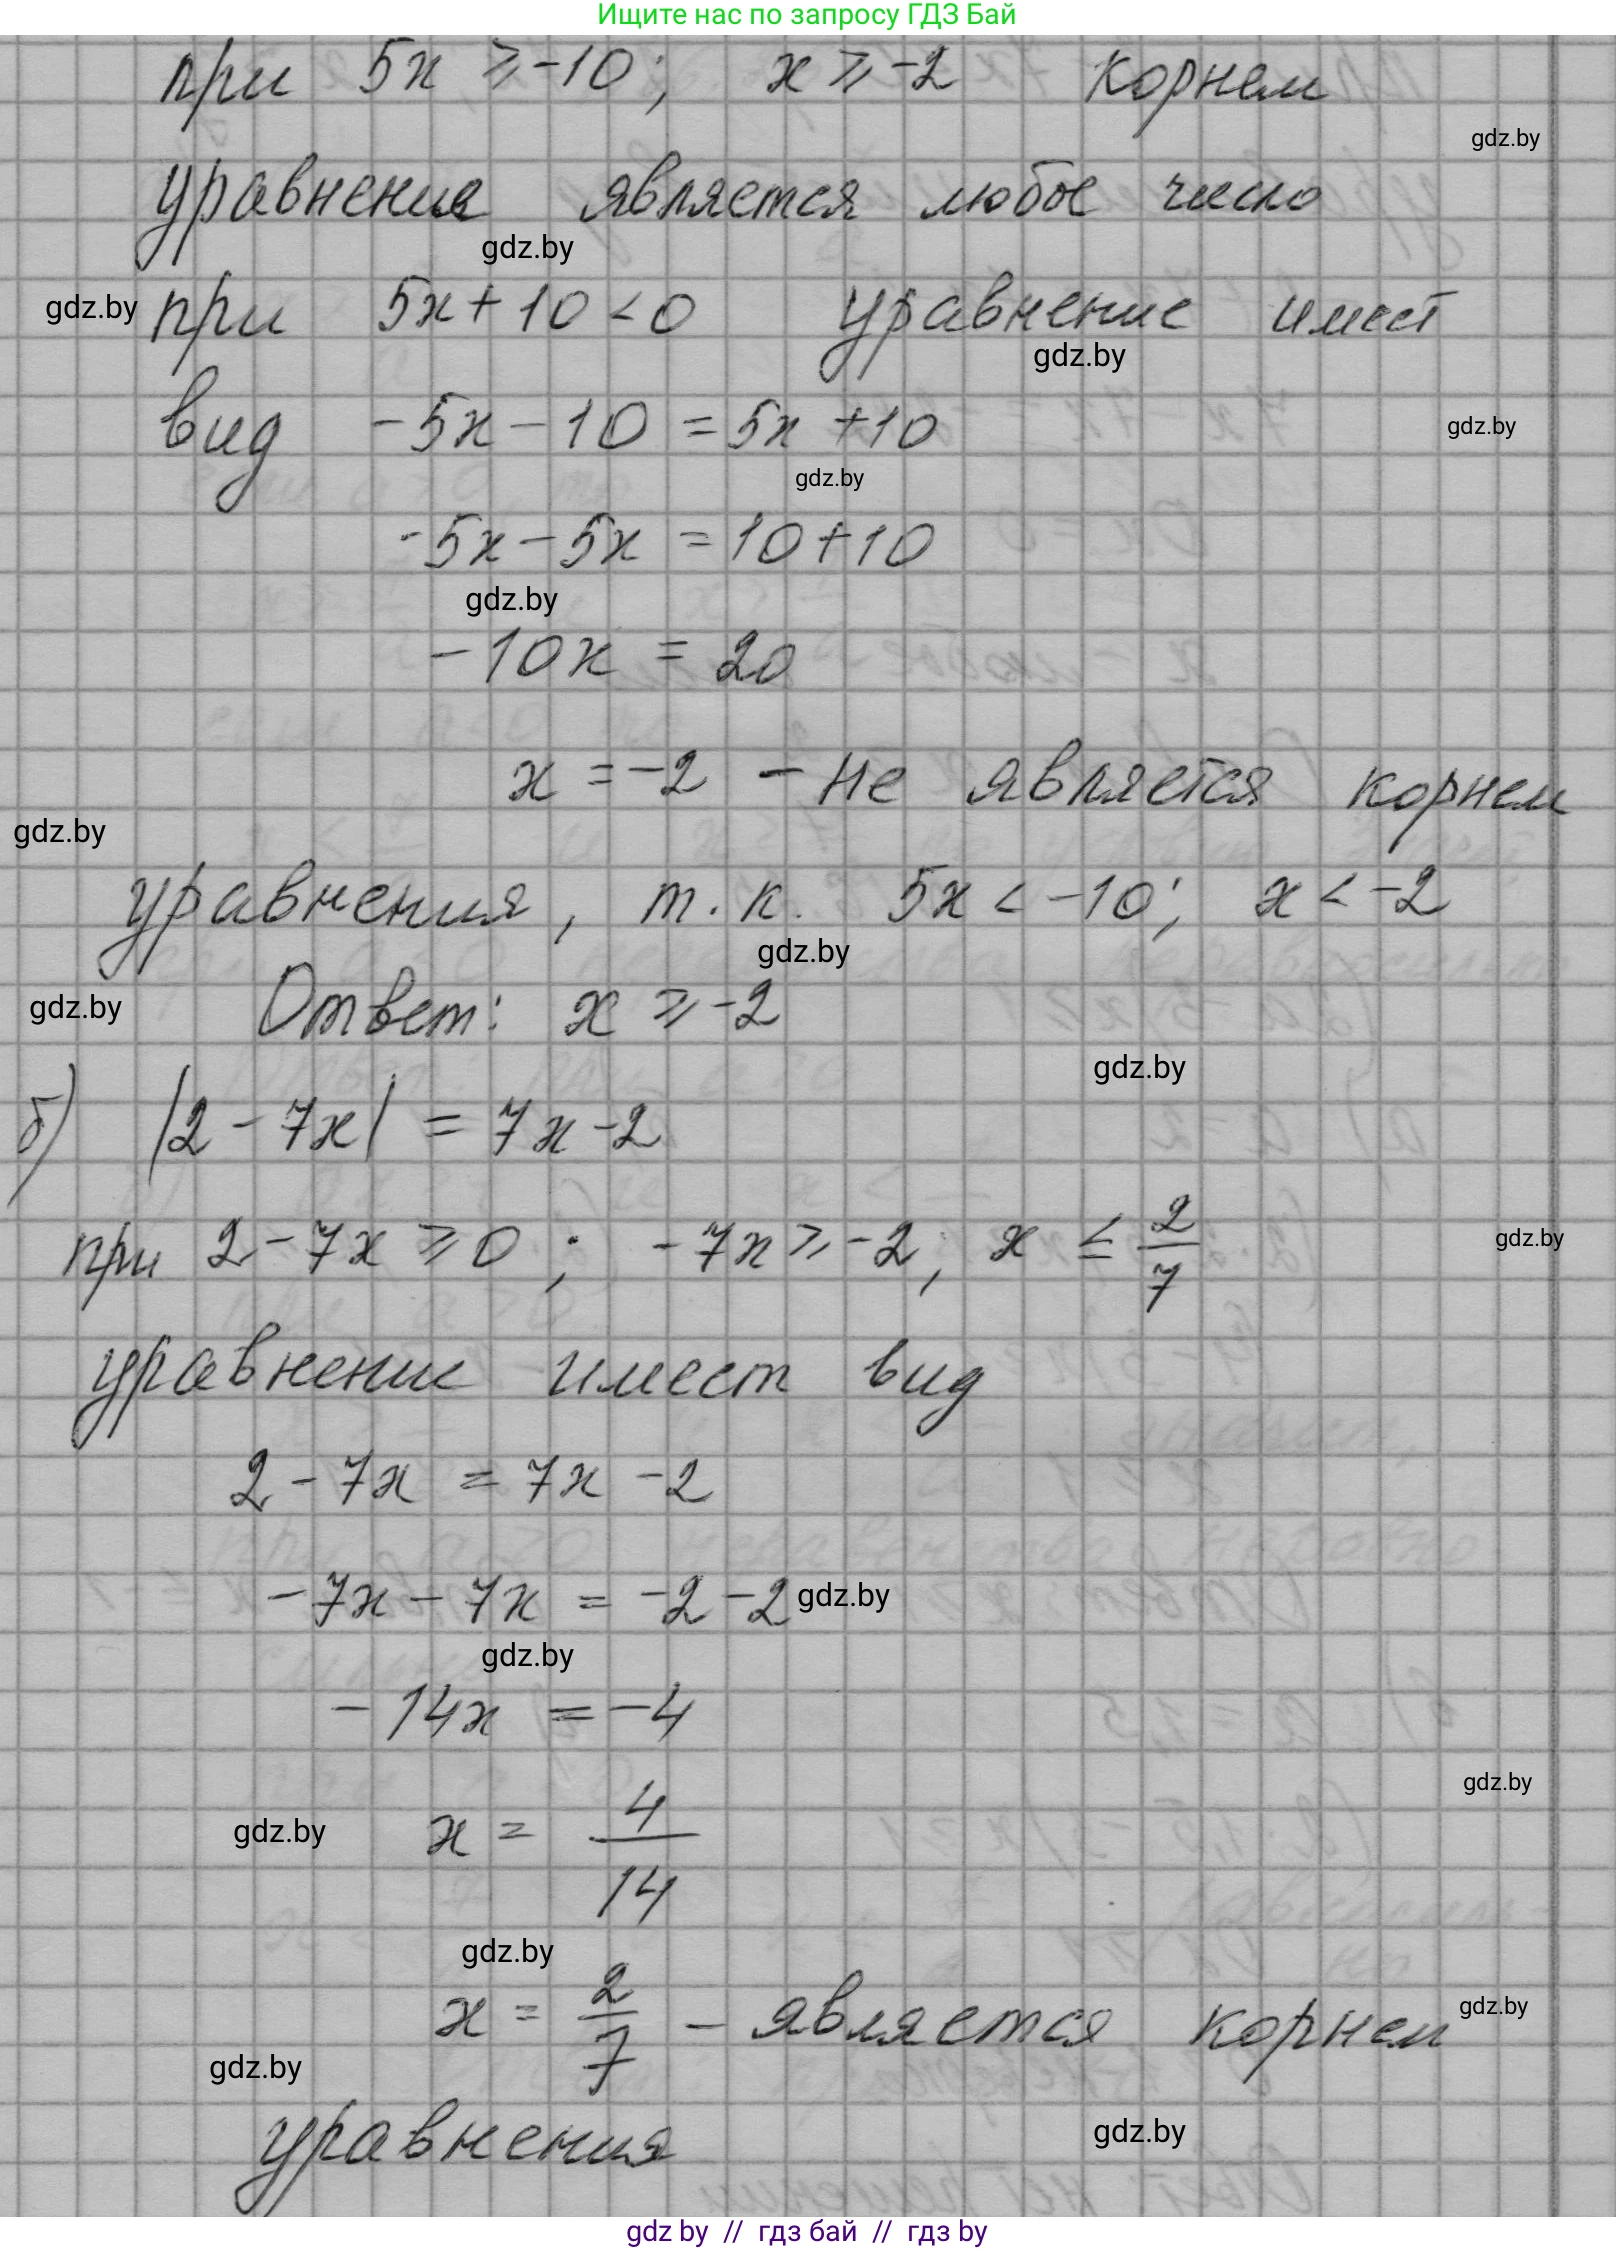 Ищите нас по запросу ГДЗ Бай
при 5x ⩾ -10; x ⩾ -2 корнем
gdz.by
уравнение является любое число
gdz.by
gdz.by при 5x + 10 < 0 уравнение имеет
gdz.by
вид -5x - 10 = 5x + 10
gdz.by
gdz.by
-5x - 5x = 10 + 10
gdz.by
-10x = 20
x = -2 - не является корнем
gdz.by
уравнения, т.к. 5x < -10; x < -2
gdz.by
gdz.by Ответ: x ⩾ -2
gdz.by
б) |2 - 7x| = 7x - 2
при 2 - 7x ⩾ 0; -7x ⩾ -2; x ≤ 2/7
gdz.by
уравнение имеет вид
2 - 7x = 7x - 2
-7x - 7x = -2 - 2 gdz.by
gdz.by
-14x = -4
gdz.by
gdz.by x = 4/14
gdz.by
x = 2/7 - является корнем gdz.by
gdz.by
уравнения gdz.by
gdz by // гдз бай // гдз by